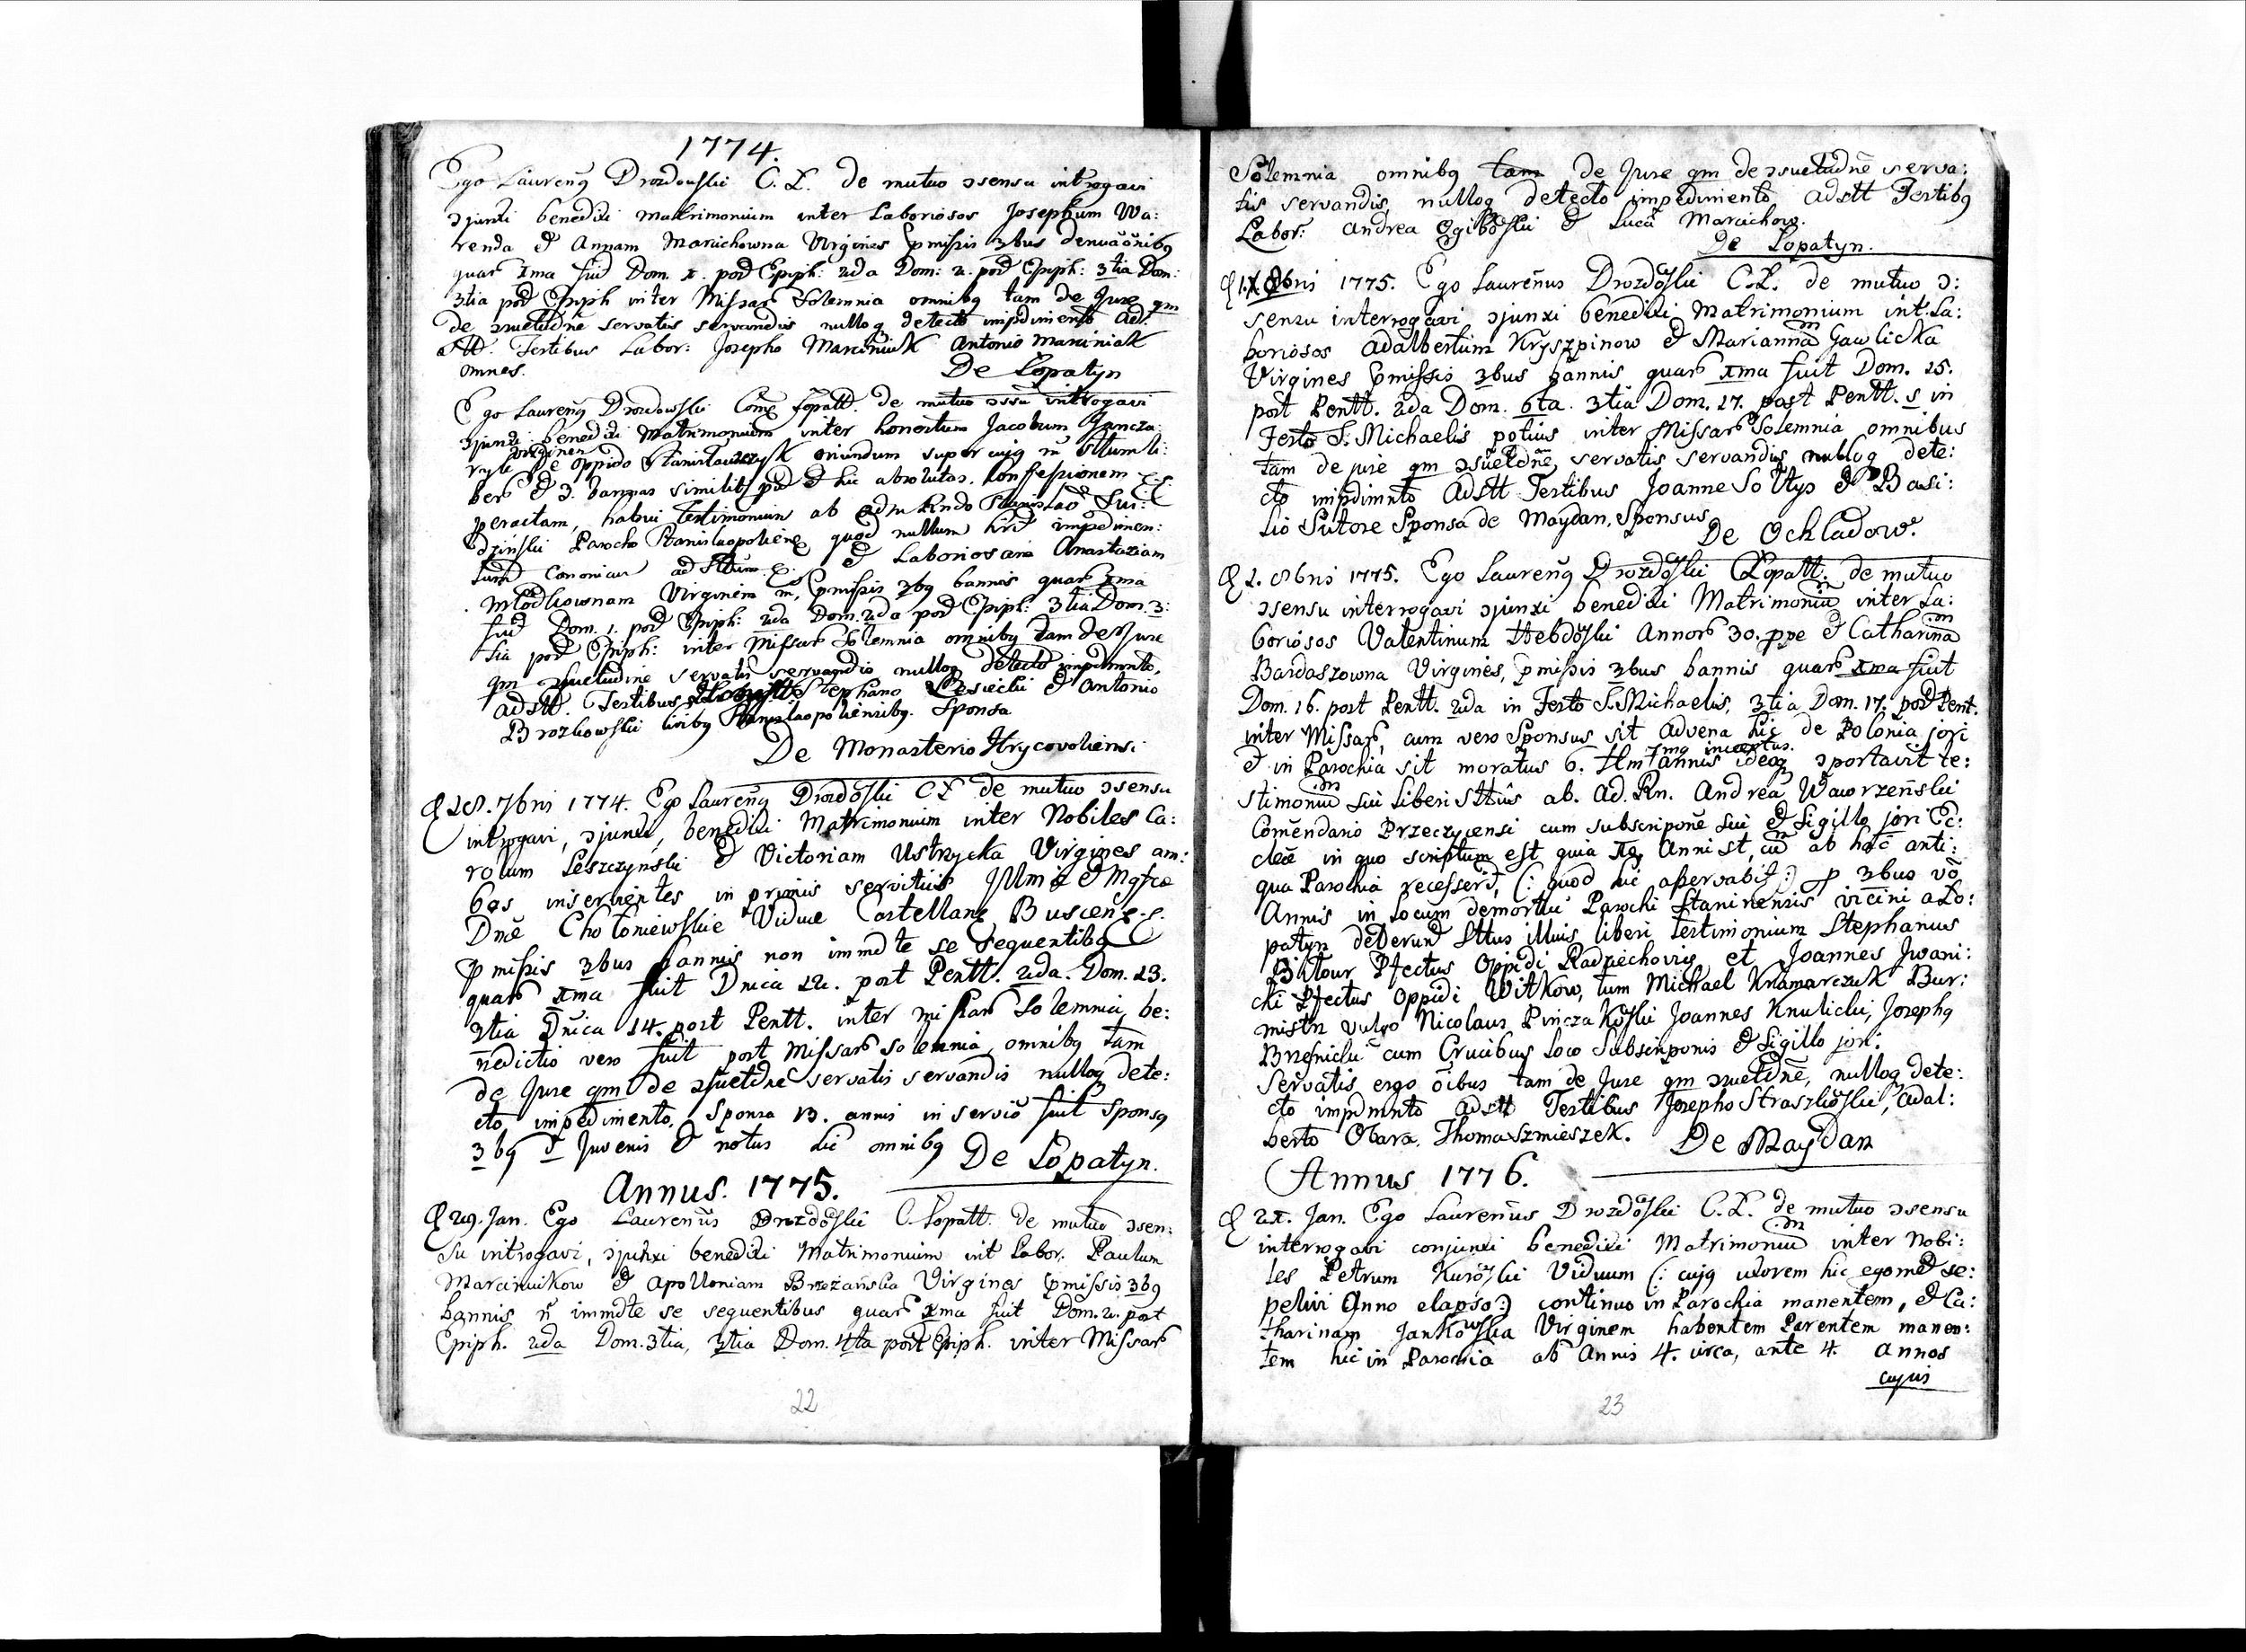 1774.
Ego Laureñ9 Drozdowski C. L. de mutuo ɔsensu introgavi
ɔjunxi benedixi matrimonium inter Laboriosos Josephum Wa:
renda et Annam Marcichowna Virgines pmissis 3bus denuãõnib9
quar Ima fuit Dom. I. post Epiph: 2da Dom: 2. post Epiph: 3tia Dom:
3tia post Epiph inter Missar Solemnia omnib9 tam de Jure qm
de ɔsuetudne servatis servandis nulloq detecto impdimento ad:
stt. Testibus Labor: Josepho Marciniuk Antonio Marciniak
omnes. De Lopatyn
Ego Laureñ9 Drozdowski Com̃ Lopatt. de mutuo ɔssu introgavi
ɔjunxi benedixi Matrimonium inter honestum Jacobum Jancza
de oppido oriundum super cuj9 m̃ sttum li:
ber et 3. bannas similit post et hic absolutas. Confessionem
peractam, habui testimonium ab adm Rndo Stanislao
Parocho quod nullum impedimen:
tum Canonicum ad sttum et Laboriosam Anastaziam
Virginem pmissis 3b9 bannis quar Ima
fuit Dom. 1. post Epiph: 2da Dom. 2da post Epiph: 3tia Dom. 3:
tia post Epiph: inter Missar Solemnia omnib9 tam de Jure
qm ɔsuetudine servatis servandis nulloq detecto impdmnto,
adstt. Testibus Stephano Lesiecki et Antonio
Brozkowski Sponsa
De Monasterio Hrycovoliensi
D 28. 7bris 1774. Ego Laureñ9 Drozdõski C L de mutuo ɔsensu
introgavi, ɔjunxi, benedixi Matrimonium inter Nobiles Ca:
rolum Leszczynski et Victoriam Ustrzycka Virgines am:
bos inservientes in primis servitiis Illmæ et Mgfcæ
Dnæ Chołoniewskie Viduæ Castellanę Buscenę.
pmissis 3bus bannis non immdte se sequentib9
quar Ima fuit Dnica 12. post Pentt. 2da. Dom. 13.
3tia Dnica 14. post Pentt. inter missar Solemnia, be:
nedictio vero fuit post Missar solemnia, omnib9 tam
de Jure qm de ɔsuetdne servatis servandis nulloq dete:
cto impedimento, Sponsa 13. annis in servio fuit Spons9
3b9 et Juvenis et notus hic omnib9 De Lopatyn.
Annus. 1775.
D 29. Jan. Ego Laurenũs Drozdõski C. Lopatt. de mutuo ɔsen:
su introgavi, ɔjunxi benedixi Matrimonium int Labor. Paulum
Marciniukow et Apolloniam Brzezańska Virgines pmissis 3b9
bannis ñ immdte se sequentibus quar Ima fuit Dom. 2. post
Epiph. 2da Dom. 3tia, 3tia Dom. 4ta post Epiph. inter Missar
22
Solemnia omnib9 tam de Jure qm de ɔsuetudnẽ serva:
tis servandis nulloq detecto impedimento adstt Testib9
Labor: Andrea Ogibõski et Luca Marcichow.
De Lopatyn.
8bris 1775. Ego Laureñus Drozdõski C. L. de mutuo ɔ:
sensu interrogavi ɔjunxi benedixi Matrimonium int. La:
boriosos Adalbertum Kryszpinow et Mariannã Gawlicka
Virgines pmissis 3bus bannis quar Ima fuit Dom. 15.
post Pentt. 2da Dom. 6ta. 3tia Dom. 17. post Pentt. s in
Festo S. Michaelis potius inter Missar Solemnia omnibus
tam de jure qm ɔsuetdnẽ, servatis servandis nulloq dete:
cto impdimnto Adstt Testibus Joanne Sołtys et Basi:
lio Sutore Sponsa de Maydan, Sponsus
De Ochladow.
D 2. 8bris 1775. Ego Laureñ9 Drozdõski C Lopatt. de mutuo
ɔsensu interrogavi ɔjunxi benedixi Matrimoniũ inter La:
boriosos Valentinum Hebdõski Annor 30. ppe et Catharinã
Bardaszowna Virgines, pmissis 3bus bannis quar Ima fuit
Dom. 16. post Pentt. 2da in Festo S. Michaelis, 3tia Dom. 17. post Pent.
inter Missar, cum vero Sponsus sit advena hic de Polonia jori
Imo inceptus.
et in Parochia sit moratus 6. annis ideoq ɔportavit te:
stimoniũ sui liberi sttus ab. Ad. Rn. Andrea Wawrzeñski
Comẽndario Przeczycensi cum subscripone sui et Sigillo jori Ec:
clẽæ in quo scriptum est quia Anni st, cũ ab hac anti:
qua Parochia recesserit, (: quod hic asservabit :) p 3bus võ
Annis in locum demortui Parochi Staninensis vicini a Lo:
patyn dederunt Sttus illius liberi testimonium Stephanus
Bitour Pfectus Oppidi Radziechoviẽ et Joannes Jwani:
cki Pfectus Oppidi Witkow, tum Michael Kramarczuk Bur:
mistrz vulgo Nicolaus Joannes Knulicki, Joseph9
Brzesnicki cum Crucibus loco Subscriponis et Sigillo jori.
Servatis ergo õibus tam de Jure qm ɔsuetdnẽ, nulloq dete:
cto impdmnto adstt Testibus Josepho Straszkõski, Adal:
berto Obara. Thoma Szmieszek. De Maydan
Annus 1776.
D 21. Jan. Ego Laurenũs Drozdõski C. L. de mutuo ɔsensu
interrogavi conjunxi benedixi Matrimoniũ inter Nobi:
les Petrum Kurõski Viduum (: cuj9 uxorem hic egomet se:
pelivi Anno elapso :) continuo in Parochia manentem, et Ca:
tharinam Jankowska Virginem habentem Parentem manen:
tem hic in Parochia ab Annis 4. circa, ante 4. annos
cujus
23